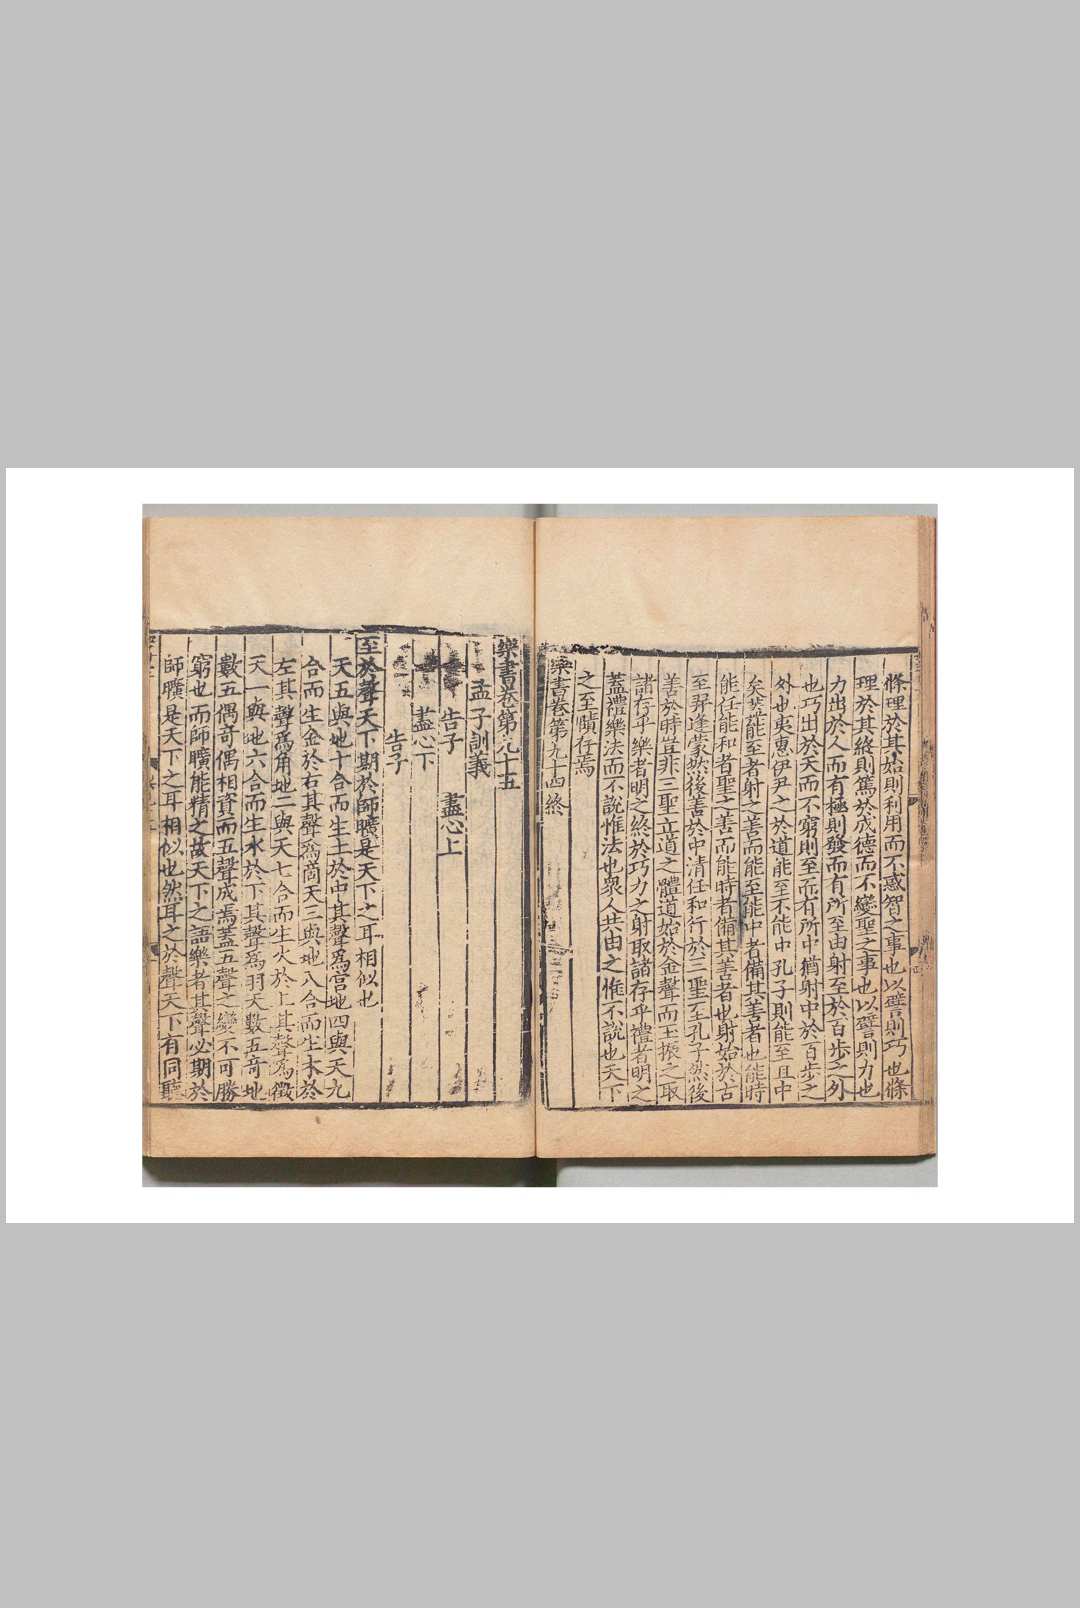 條理於其始則利用而不惑智之事也以譬則巧也條
理於其終則篤於成德而不變聖之事也以譬則力也
力出於人而有極則發而有所至由射至於百步之外
也巧出於天而不窮則至而有所中猶射中於百步之
外也夷惠伊尹之於道能至不能中孔子則能至且中
矣葢能至者射之善而能至能中者備其善者也能時
能任能和者聖之善而能時者備其善者也射始於古
至羿逢蒙然後善於中清任和行於三聖至孔子然後
善於時豈非三聖立道之體道始於金聲而玉振之取
諸存乎樂者明之終於巧力之射取諸存乎禮者明之
蓋禮樂法而不說惟法也衆人共由之惟不說也天下
之至賾存焉
樂書卷第九十四終
樂書卷第九十五
孟子訓義
告子 盡心上
盡心下
告子
至於聲天下期於師曠是天下之耳相似也
天五與地十合而生土於中其聲爲宮地四與天九
合而生金於右其聲爲商天三與地八合而生木於
左其聲爲角地二與天七合而生火於上其聲爲徵
天一與地六合而生水於下其聲爲羽天數五竒地
數五偶竒偶相資而五聲成焉蓋五聲之變不可勝
窮也而師曠能精之故天下之語樂者其聲必期於
師曠是天下之耳相似也然耳之於聲天下有同聽